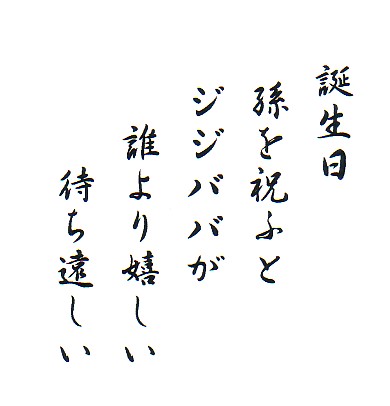 誕生日
孫を祝ふと
ジジババが
誰より嬉しい
待ち遠しい